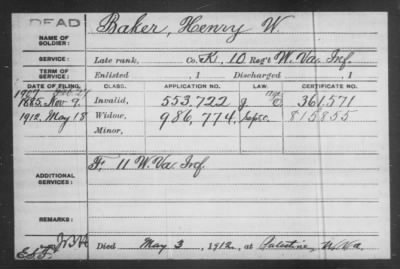 DEAD
NAME OF SOLDIER: Baker, Henry W.
SERVICE: Late rank, Co. K, 10 Reg't W. Va. Inf.
TERM OF SERVICE: Enlisted , 1 Discharged , 1
DATE OF FILING. CLASS. APPLICATION NO. LAW. CERTIFICATE NO.
1907
1885, Nov. 9. Invalid, 553,722 361,571
1912, May 18 Widow, 986,774 815855
Minor,
ADDITIONAL SERVICES: F. 11 W. Va. Inf.
REMARKS:
Died May 3, 1912, at Palestine, W. Va.